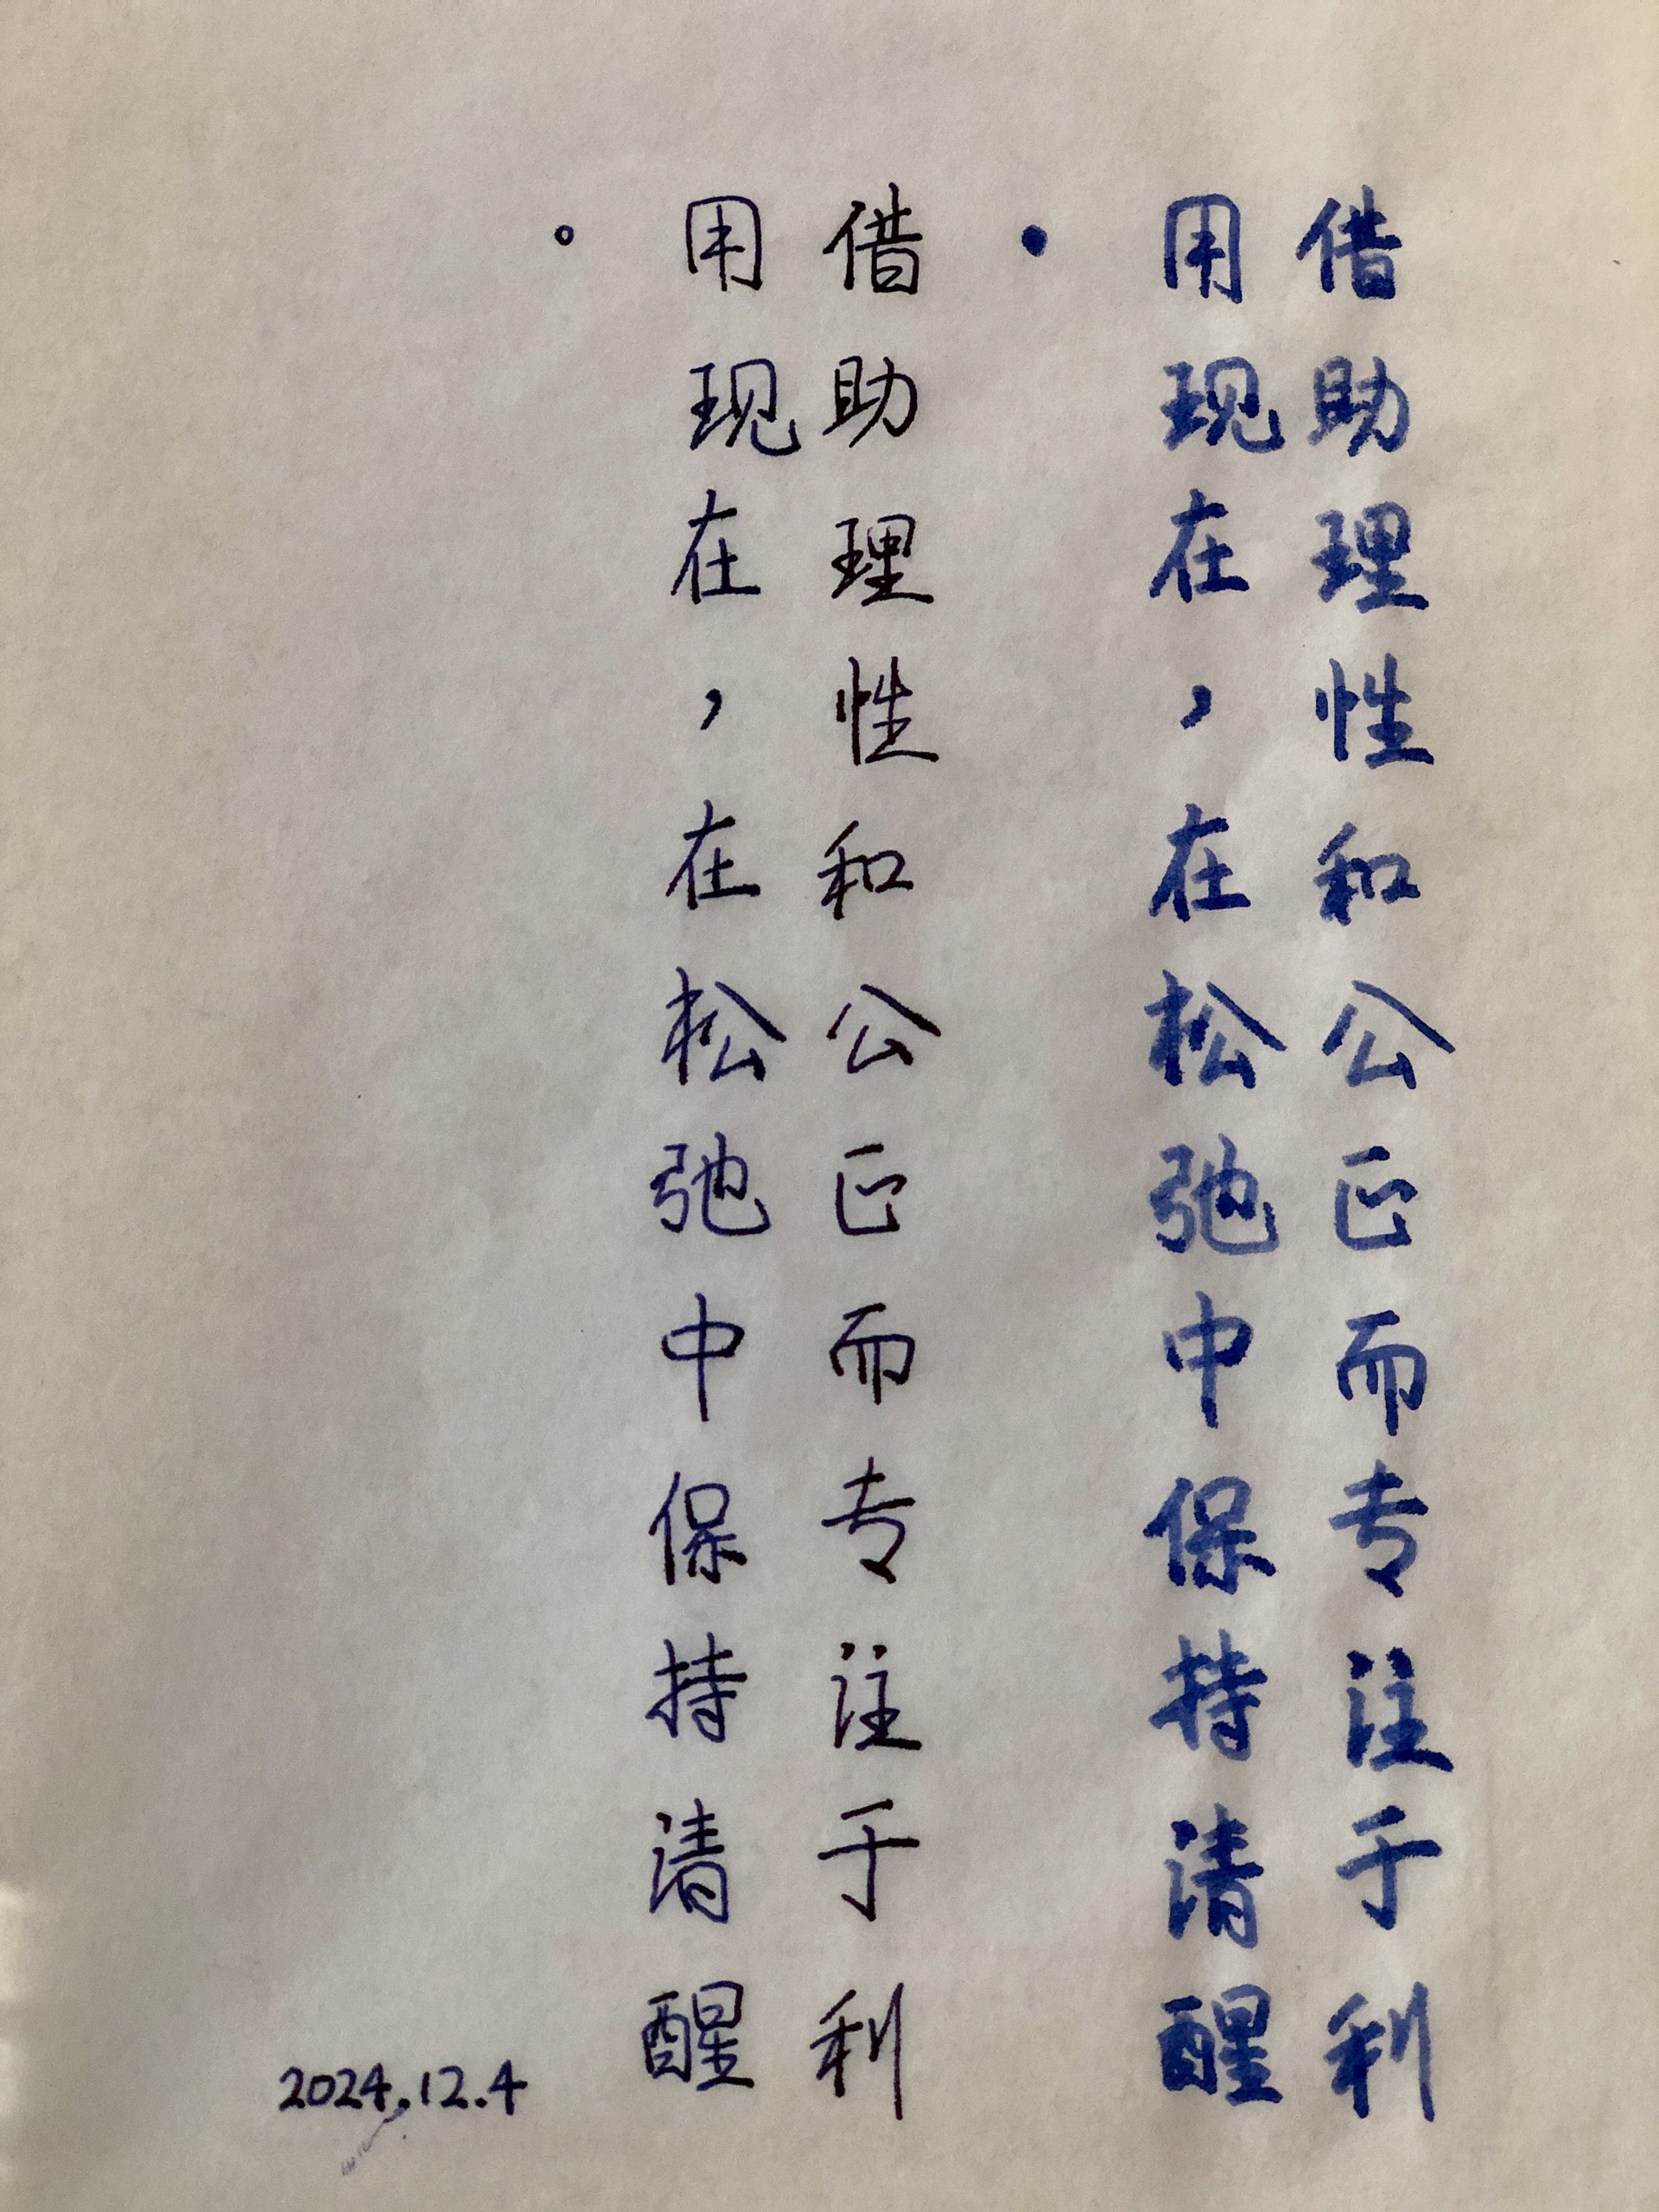 借助理性和公正而专注于利
用现在，在松弛中保持清醒
。
借助理性和公正而专注于利
用现在，在松弛中保持清醒
。
2024.12.4